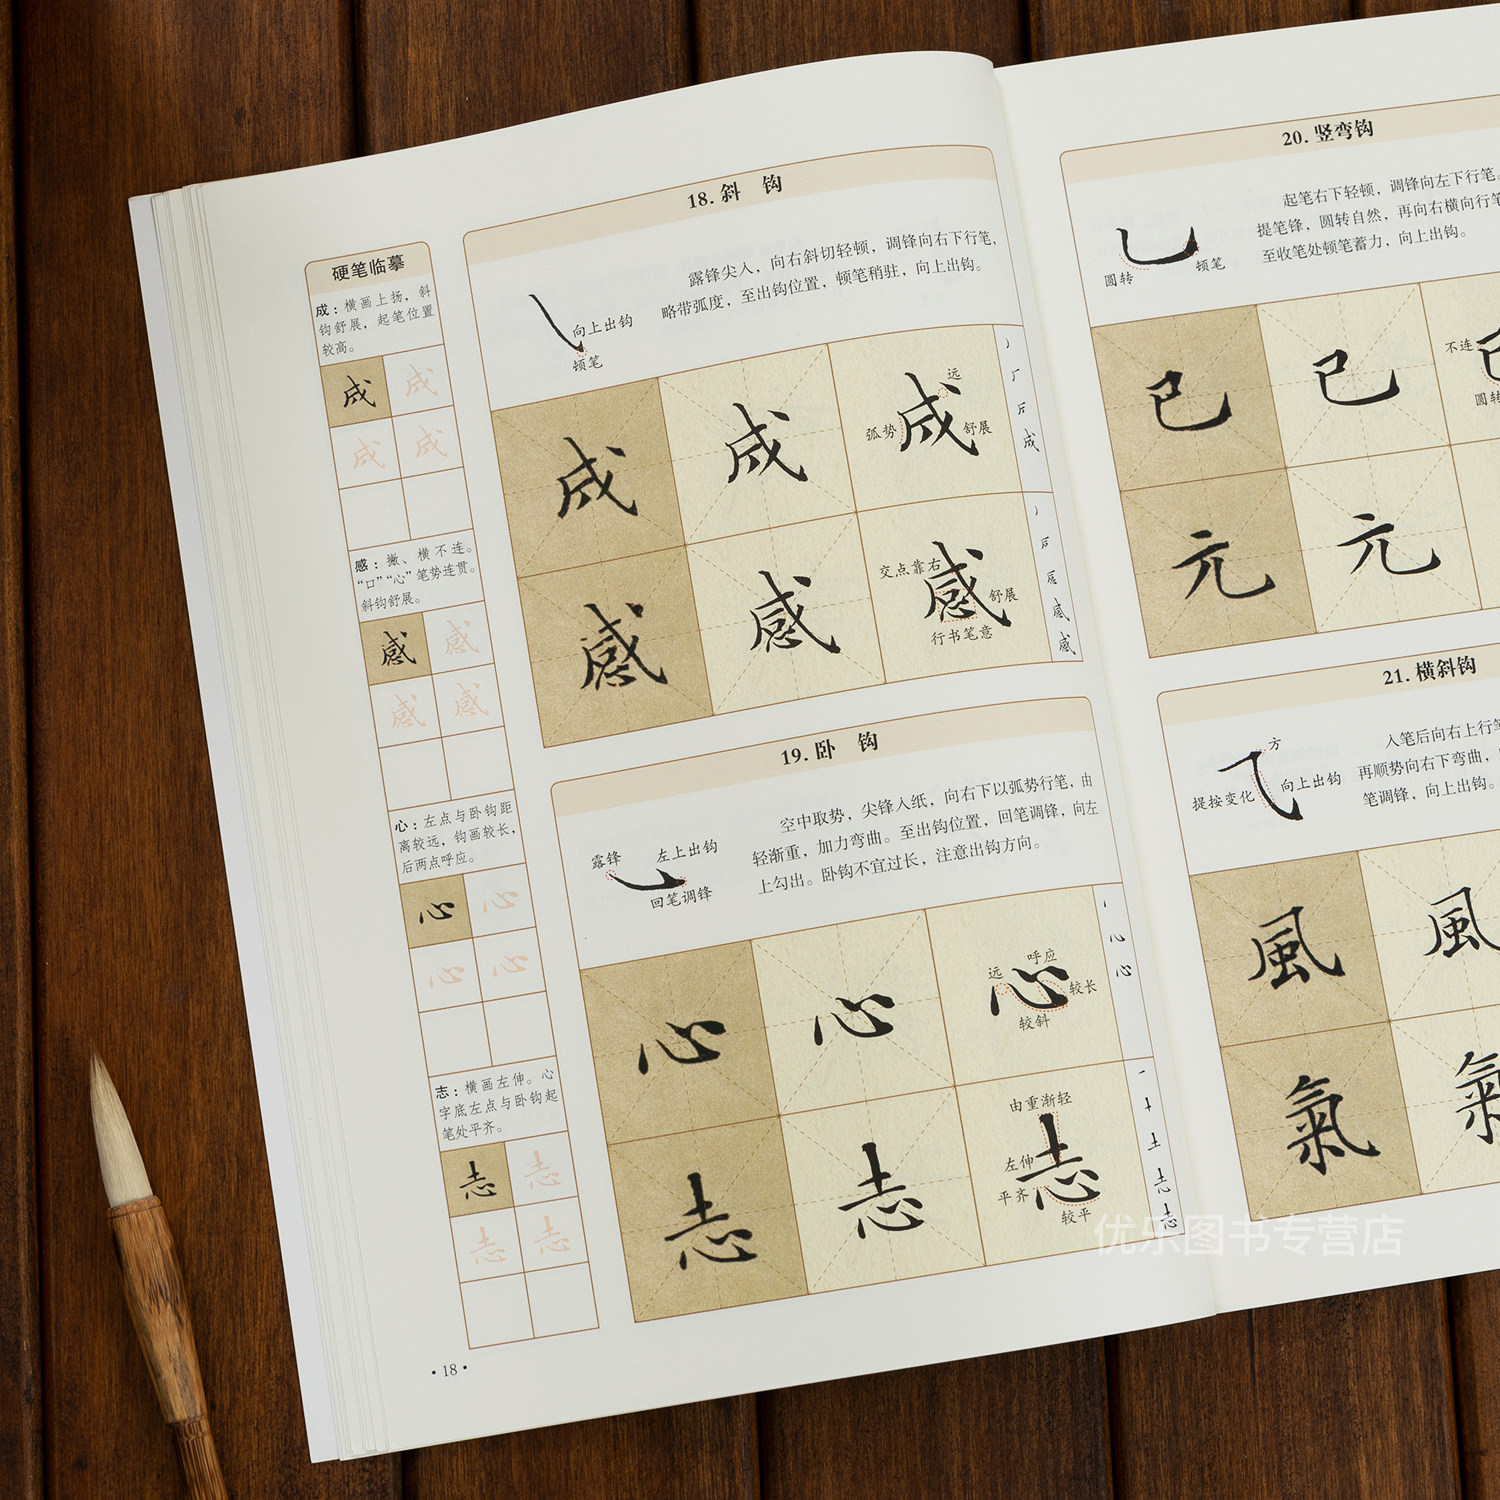 硬笔临摹
成：横画上扬，斜
钩舒展，起笔位置
较高。
成 成
成 成
感：撇、横不连。
“口”“心”笔势连贯。
斜钩舒展。
感 感
感 感
心：左点与卧钩距
离较远，钩画较长，
后两点呼应。
心 心
心 心
志：横画左伸。心
字底左点与卧钩起
笔处平齐。
志 志
志 志
·18·
18.斜 钩
露锋尖入，向右斜切轻顿，调锋向右下行笔，
略带弧度，至出钩位置，顿笔稍驻，向上出钩。
向上出钩
顿笔
成 成 成
远
弧势
舒展
成
感 感 感
交点靠右
舒展
行书笔意
感
感
19.卧 钩
空中取势，尖锋入纸，向右下以弧势行笔，由
轻渐重，加力弯曲。至出钩位置，回笔调锋，向左
上勾出。卧钩不宜过长，注意出钩方向。
露锋
左上出钩
回笔调锋
心 心 心
呼应
远
较长
较斜
心
心
志 志 志
由重渐轻
左伸
平齐
较平
士
志
志
20.竖弯钩
起笔右下轻顿，调锋向左下行笔。
提笔锋，圆转自然，再向右横向行笔
至收笔处顿笔蓄力，向上出钩。
圆转
顿笔
已 已
不连
圆转
元 元
21.横斜钩
入笔后向右上行笔
再顺势向右下弯曲，
笔调锋，向上出钩。
方
提按变化
向上出钩
風 風
氣 氣
优乐图书专营店